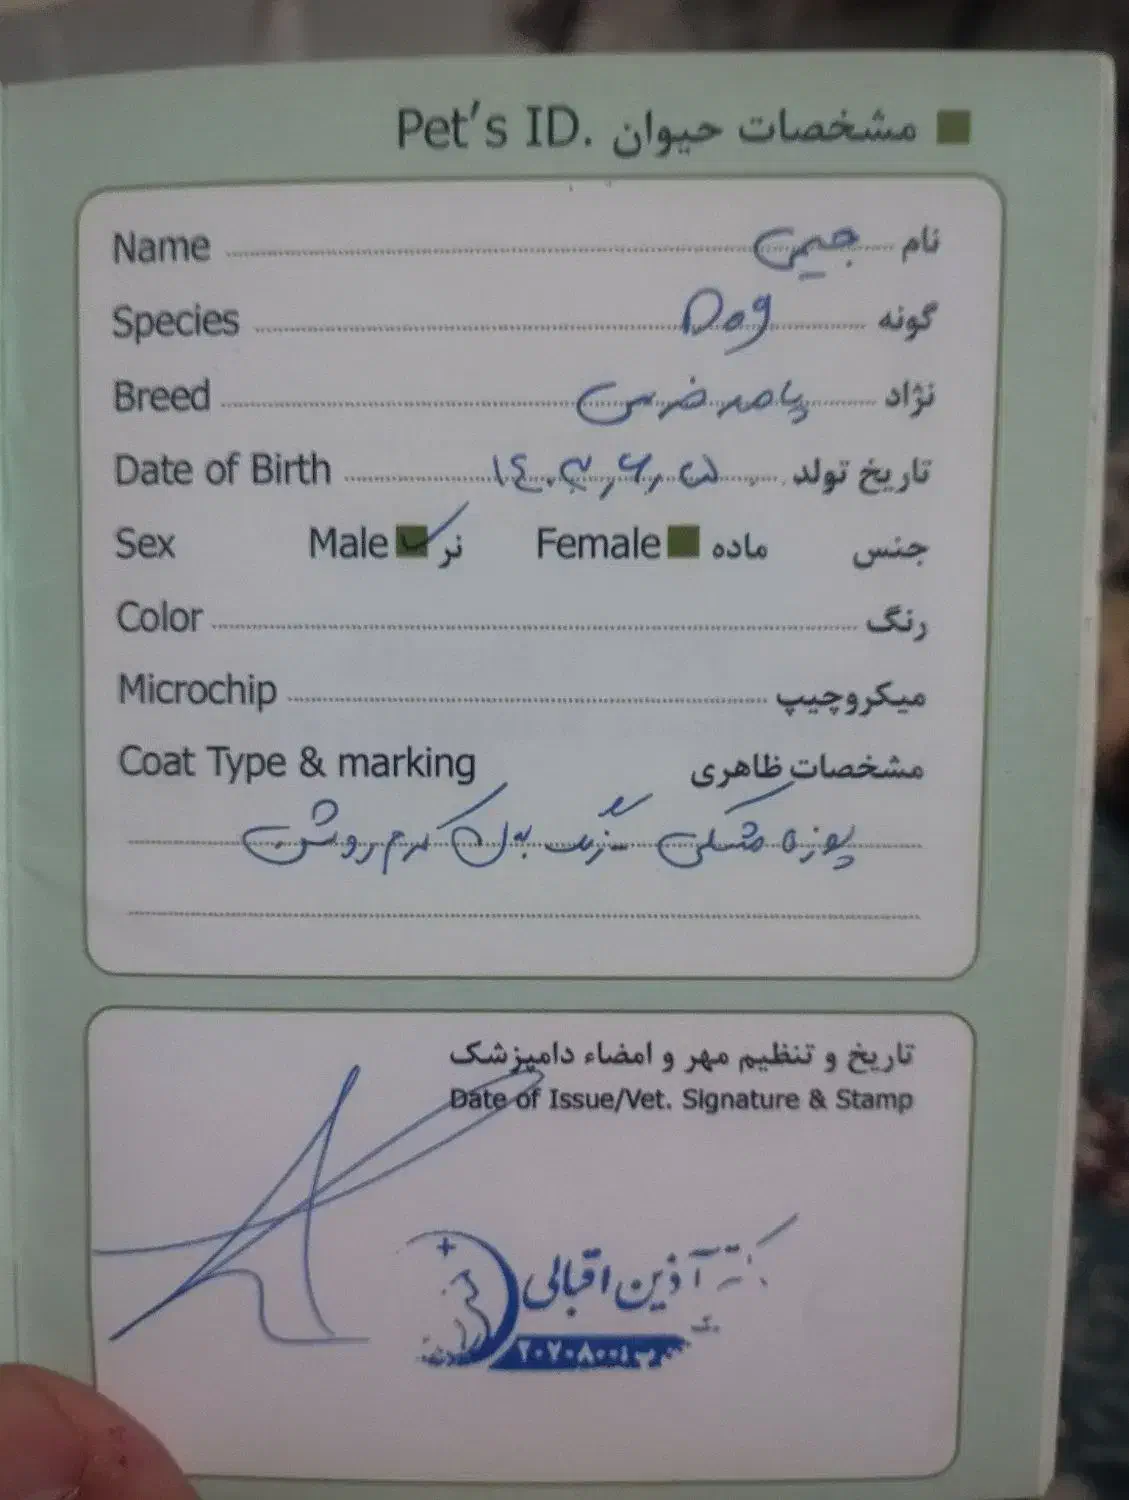 مشخصات حیوان Pet's ID.
Name نام جیمی
Species گونه Dog
Breed نژاد
Date of Birth تاریخ تولد
Sex Male نر Female ماده جنس
Color رنگ
Microchip میکروچیپ
Coat Type & marking مشخصات ظاهری
پوزه مشکی رنگ بدن کرم روشن
تاریخ و تنظیم مهر و امضاء دامپزشک
Date of Issue/Vet. Signature & Stamp
آذین اقبالی